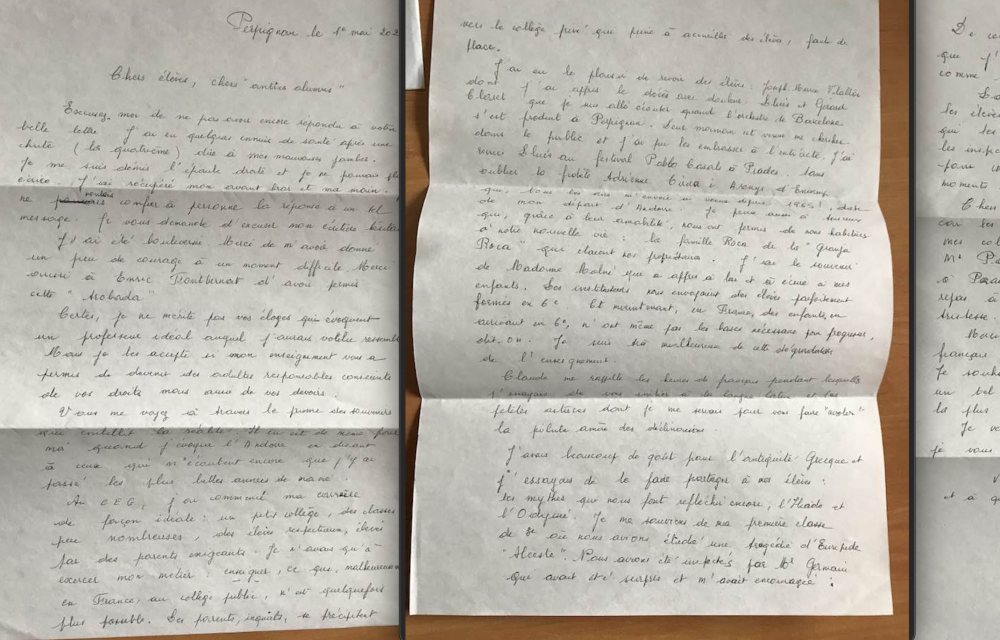 Perpignan le 1er mai 202
Chers élèves, chers "antics alumnes"
Excusez moi de ne pas avoir encore répondu à votre
belle lettre. J'ai eu quelques ennuis de santé après une
chute (la quatrième) due à mes mauvaises jambes.
Je me suis démis l'épaule droite et je ne pouvais plus
écrire. J'ai récupéré mon avant bras et ma main.
ne voulais confier à personne la réponse à un tel
message. Je vous demande d'excuser mon écriture
J'ai été bouleversée. Merci de m'avoir donné
un peu de courage à un moment difficile. Merci
aussi à Enric Fontbernat d'avoir permis
cette "trobada"
Certes, je ne mérite pas vos éloges qui évoquent
un professeur idéal auquel j'aurais voulu ressembl
Mais je les accepte si mon enseignement vous a
permis de devenir des adultes responsables conscients
de vos droits mais aussi de vos devoirs.
Vous me voyez à travers le prisme des souvenirs
qui embellit la réalité. Il en est de même pour
moi quand j'évoque l'Andorre en disant
à ceux qui m'écoutent encore que j'y ai
passé les plus belles années de ma vie.
Au CEG, j'ai commencé ma carrière
de façon idéale: un petit collège, des classes
peu nombreuses, des élèves respectueux, élevés
par des parents exigeants. Je n'avais qu'à
exercer mon métier: enseigner, ce que, malheureusem
en France, au collège public, n'est quelquefois
plus possible. Les parents, inquiets, se précipitent
vers le collège privé qui peine à accueillir des élèves, faute de
place.
J'ai eu le plaisir de revoir des élèves: Joseph Marie
dont j'ai appris le décès avec douleur, Lluis et Gérard
Claret que je suis allé écouter quand l'orchestre de Barcelone
s'est produit à Perpignan. Leur maman est venue me chercher
dans le public et j'ai pu les embrasser à l'entr'acte. J'ai
revu Lluis au festival Pablo Casals à Prades. Sans
oublier la fidèle Adrienne
qui, tous les ans depuis 1965!, date
de mon départ d'Andorre. Je pense aussi à
qui, grâce à leur amabilité, nous ont permis de nous habituer
à notre nouvelle vie: la famille Roca de la "Granja
Roca" qui étaient nos propriétaires. J'ai le souvenir
de Madame Molné qui a appris à lire et à écrire à mes
enfants. Les instituteurs nous envoyaient des élèves parfaitement
formés en 6e. Et maintenant, en France, des enfants, en
arrivant en 6e, n'ont même pas les bases nécessaires pour progresser,
dit-on. Je suis très malheureuse de cette dégradation
de l'enseignement.
Claude me rappelle les heures de français pendant lesquelles
j'essayais de vous initier à la langue latine et les
petites astuces dont je me servais pour vous faire "avaler"
la pilule amère des déclinaisons.
J'avais beaucoup de goût pour l'antiquité Grecque et
j'essayais de le faire partager à mes élèves:
les mythes qui nous font réfléchir encore, l'Iliade et
l'Odyssée. Je me souviens de ma première classe
de 5e où nous avions étudié une tragédie d'Euripide
"Alceste". Nous avions été inspectés par Mr Germain
qui avait été surpris et m'avait encouragée!
De
que j'
comme
les élèves
qui
les
pour
moments
Chers
car les
mes
Mr
à
repas à
tristesse.
français
Je
un bel
la plus
Je
je vous
et à